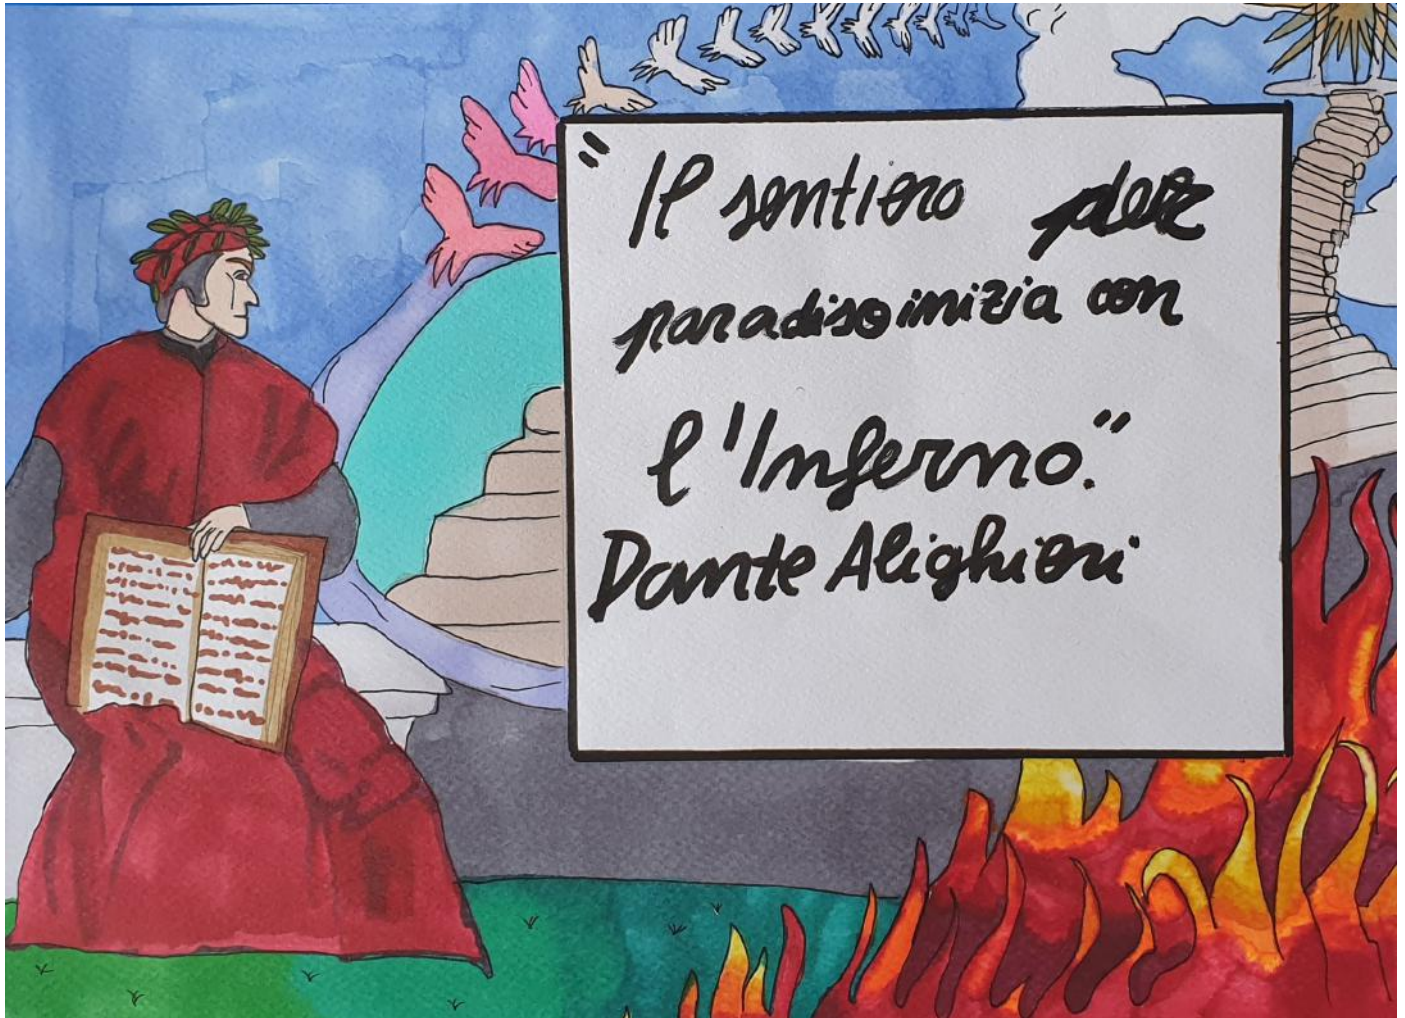 "Il sentiero del
paradiso inizia con
l'Inferno."
Dante Alighieri